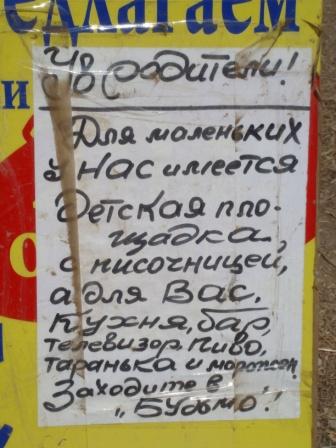 едлагаем
и
Ув родители!
Для маленьких
у нас имеется
Детская пло-
щадка,
с писочницей,
а для Вас,
Кухня, бар,
телевизор, пиво,
таранька и морожен.
Заходите в
„Будьмо"!